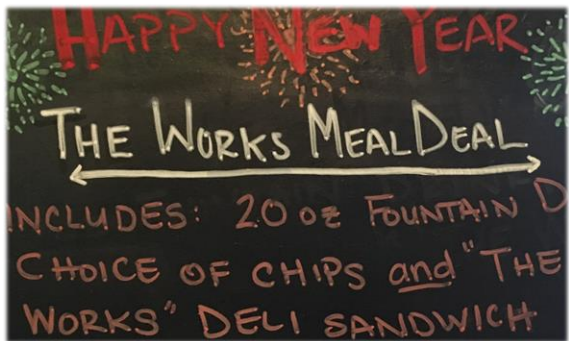 HAPPY NEW YEAR
THE WORKS MEAL DEAL
INCLUDES: 20 oz FOUNTAIN D
CHOICE OF CHIPS and "THE
WORKS" DELI SANDWICH